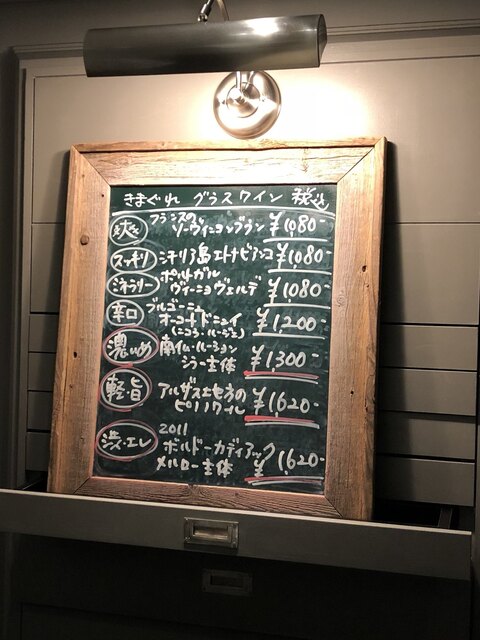 きまぐれ グラスワイン 税込
フランスの
ソーヴィニヨンブラン ¥1,080-
スッキリ シチリア島エトナビアンコ ¥1,080-
ポルトガル
ミネラリー ヴィーニョヴェルデ ¥1,080-
辛口 ブルゴーニュ
オーコートドニュイ
¥1,200-
濃いめ 南仏ルーション
シラー主体 ¥1,300-
軽旨 アルザスエセネの
ピノノワール ¥1,620-
2011
渋・エレ ボルドーカディアック
メルロー主体 ¥1,620-